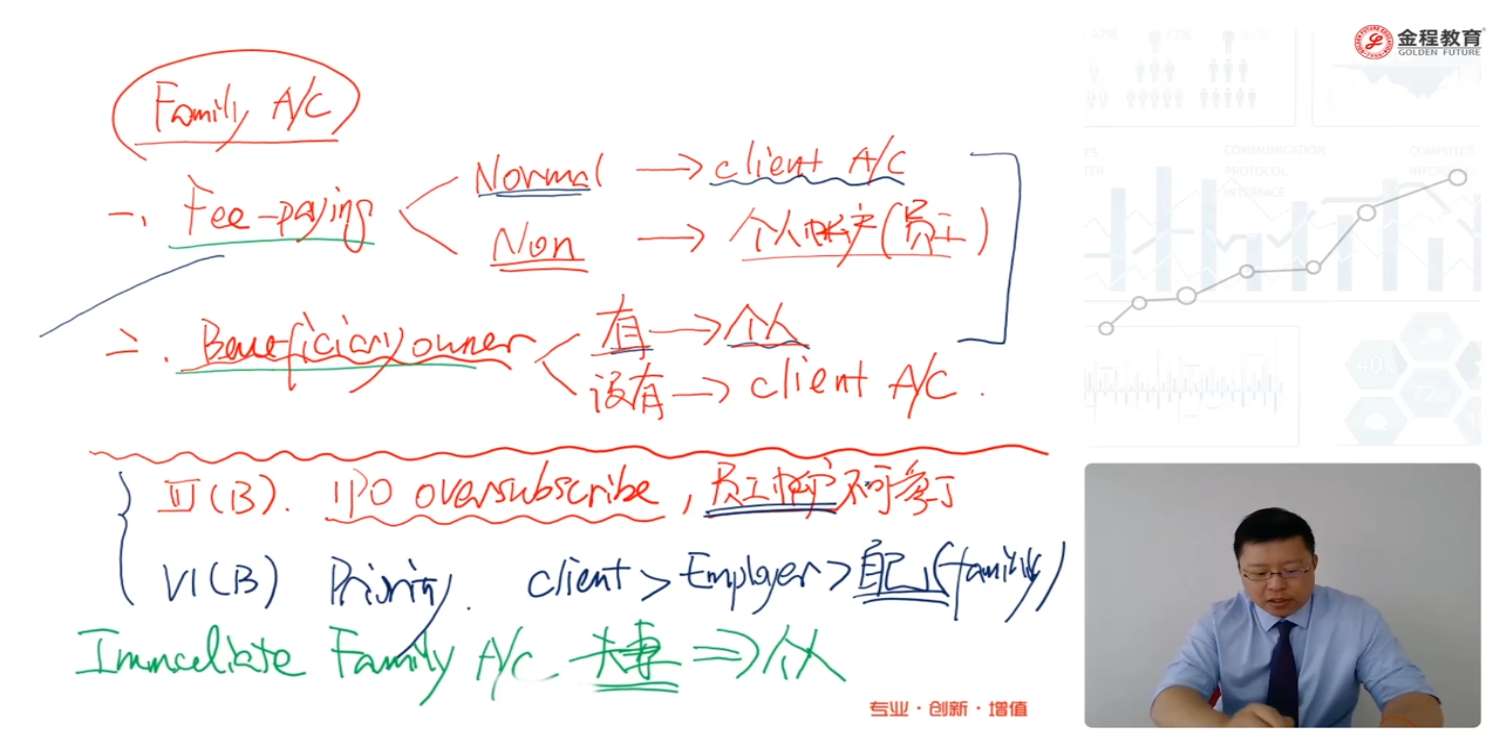 金程教育
GOLDEN FUTURE
Family A/C
一、Fee-paying
Normal → client A/C
Non → 个人帐户(员工)
二. Beneficiary owner
有 → 个人
没有 → client A/C.
III(B). IPO oversubscribe, 员工帐户不可参与
VI(B) Priority. client > Employer > 自己(family)
Immediate Family A/C 夫妻 ⇒ 个人
专业·创新·增值